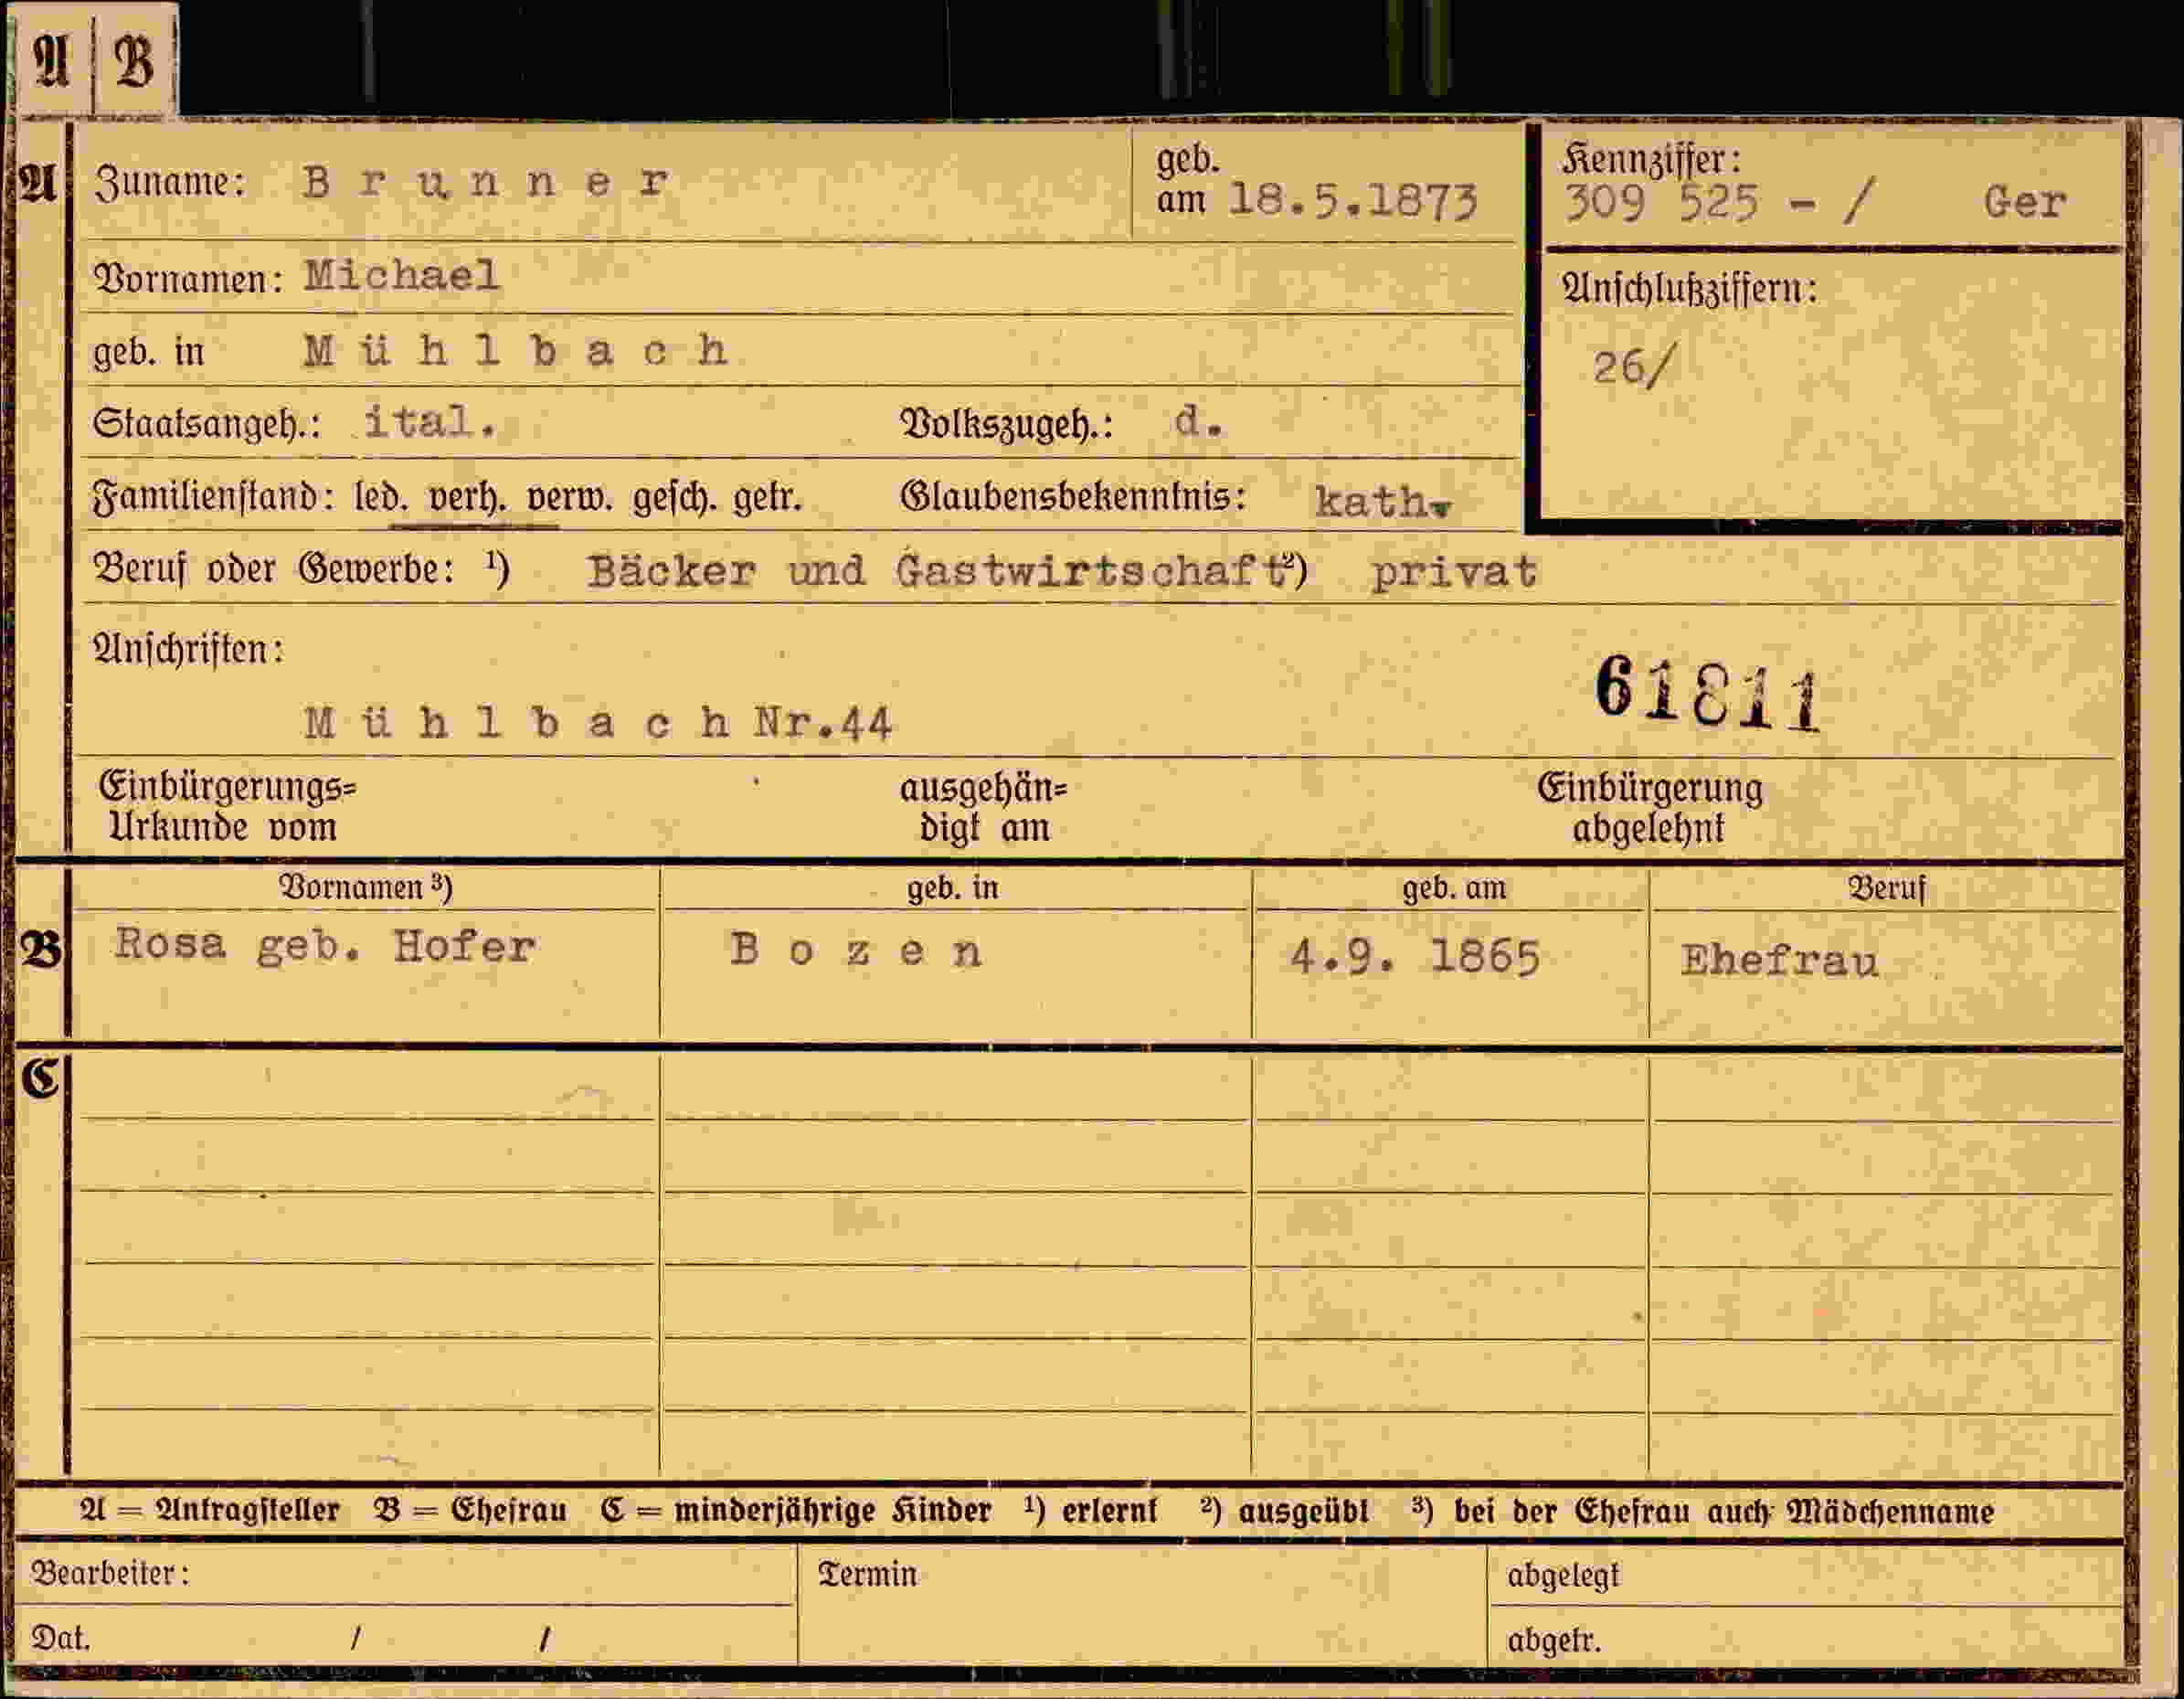 A B
A Zuname: Brunner geb. am 18.5.1873 Kennziffer: 309 525 - / Ger
Vornamen: Michael
Anschlußziffern:
geb. in Mühlbach
26/
Staatsangeh.: ital. Volkszugeh.: d.
Familienstand: led. verh. verw. gesch. getr. Glaubensbekenntnis: kath.
Beruf oder Gewerbe: ¹) Bäcker und Gastwirtschaft ²) privat
Anschriften:
61811
Mühlbach Nr.44
Einbürgerungs= ausgehän= Einbürgerung
Urkunde vom digt am abgelehnt
Vornamen ³) geb. in geb. am Beruf
B Rosa geb. Hofer Bozen 4.9. 1865 Ehefrau
C
A = Antragsteller B = Ehefrau C = minderjährige Kinder ¹) erlernt ²) ausgeübt ³) bei der Ehefrau auch Mädchenname
Bearbeiter: Termin abgelegt
Dat. / / abgetr.